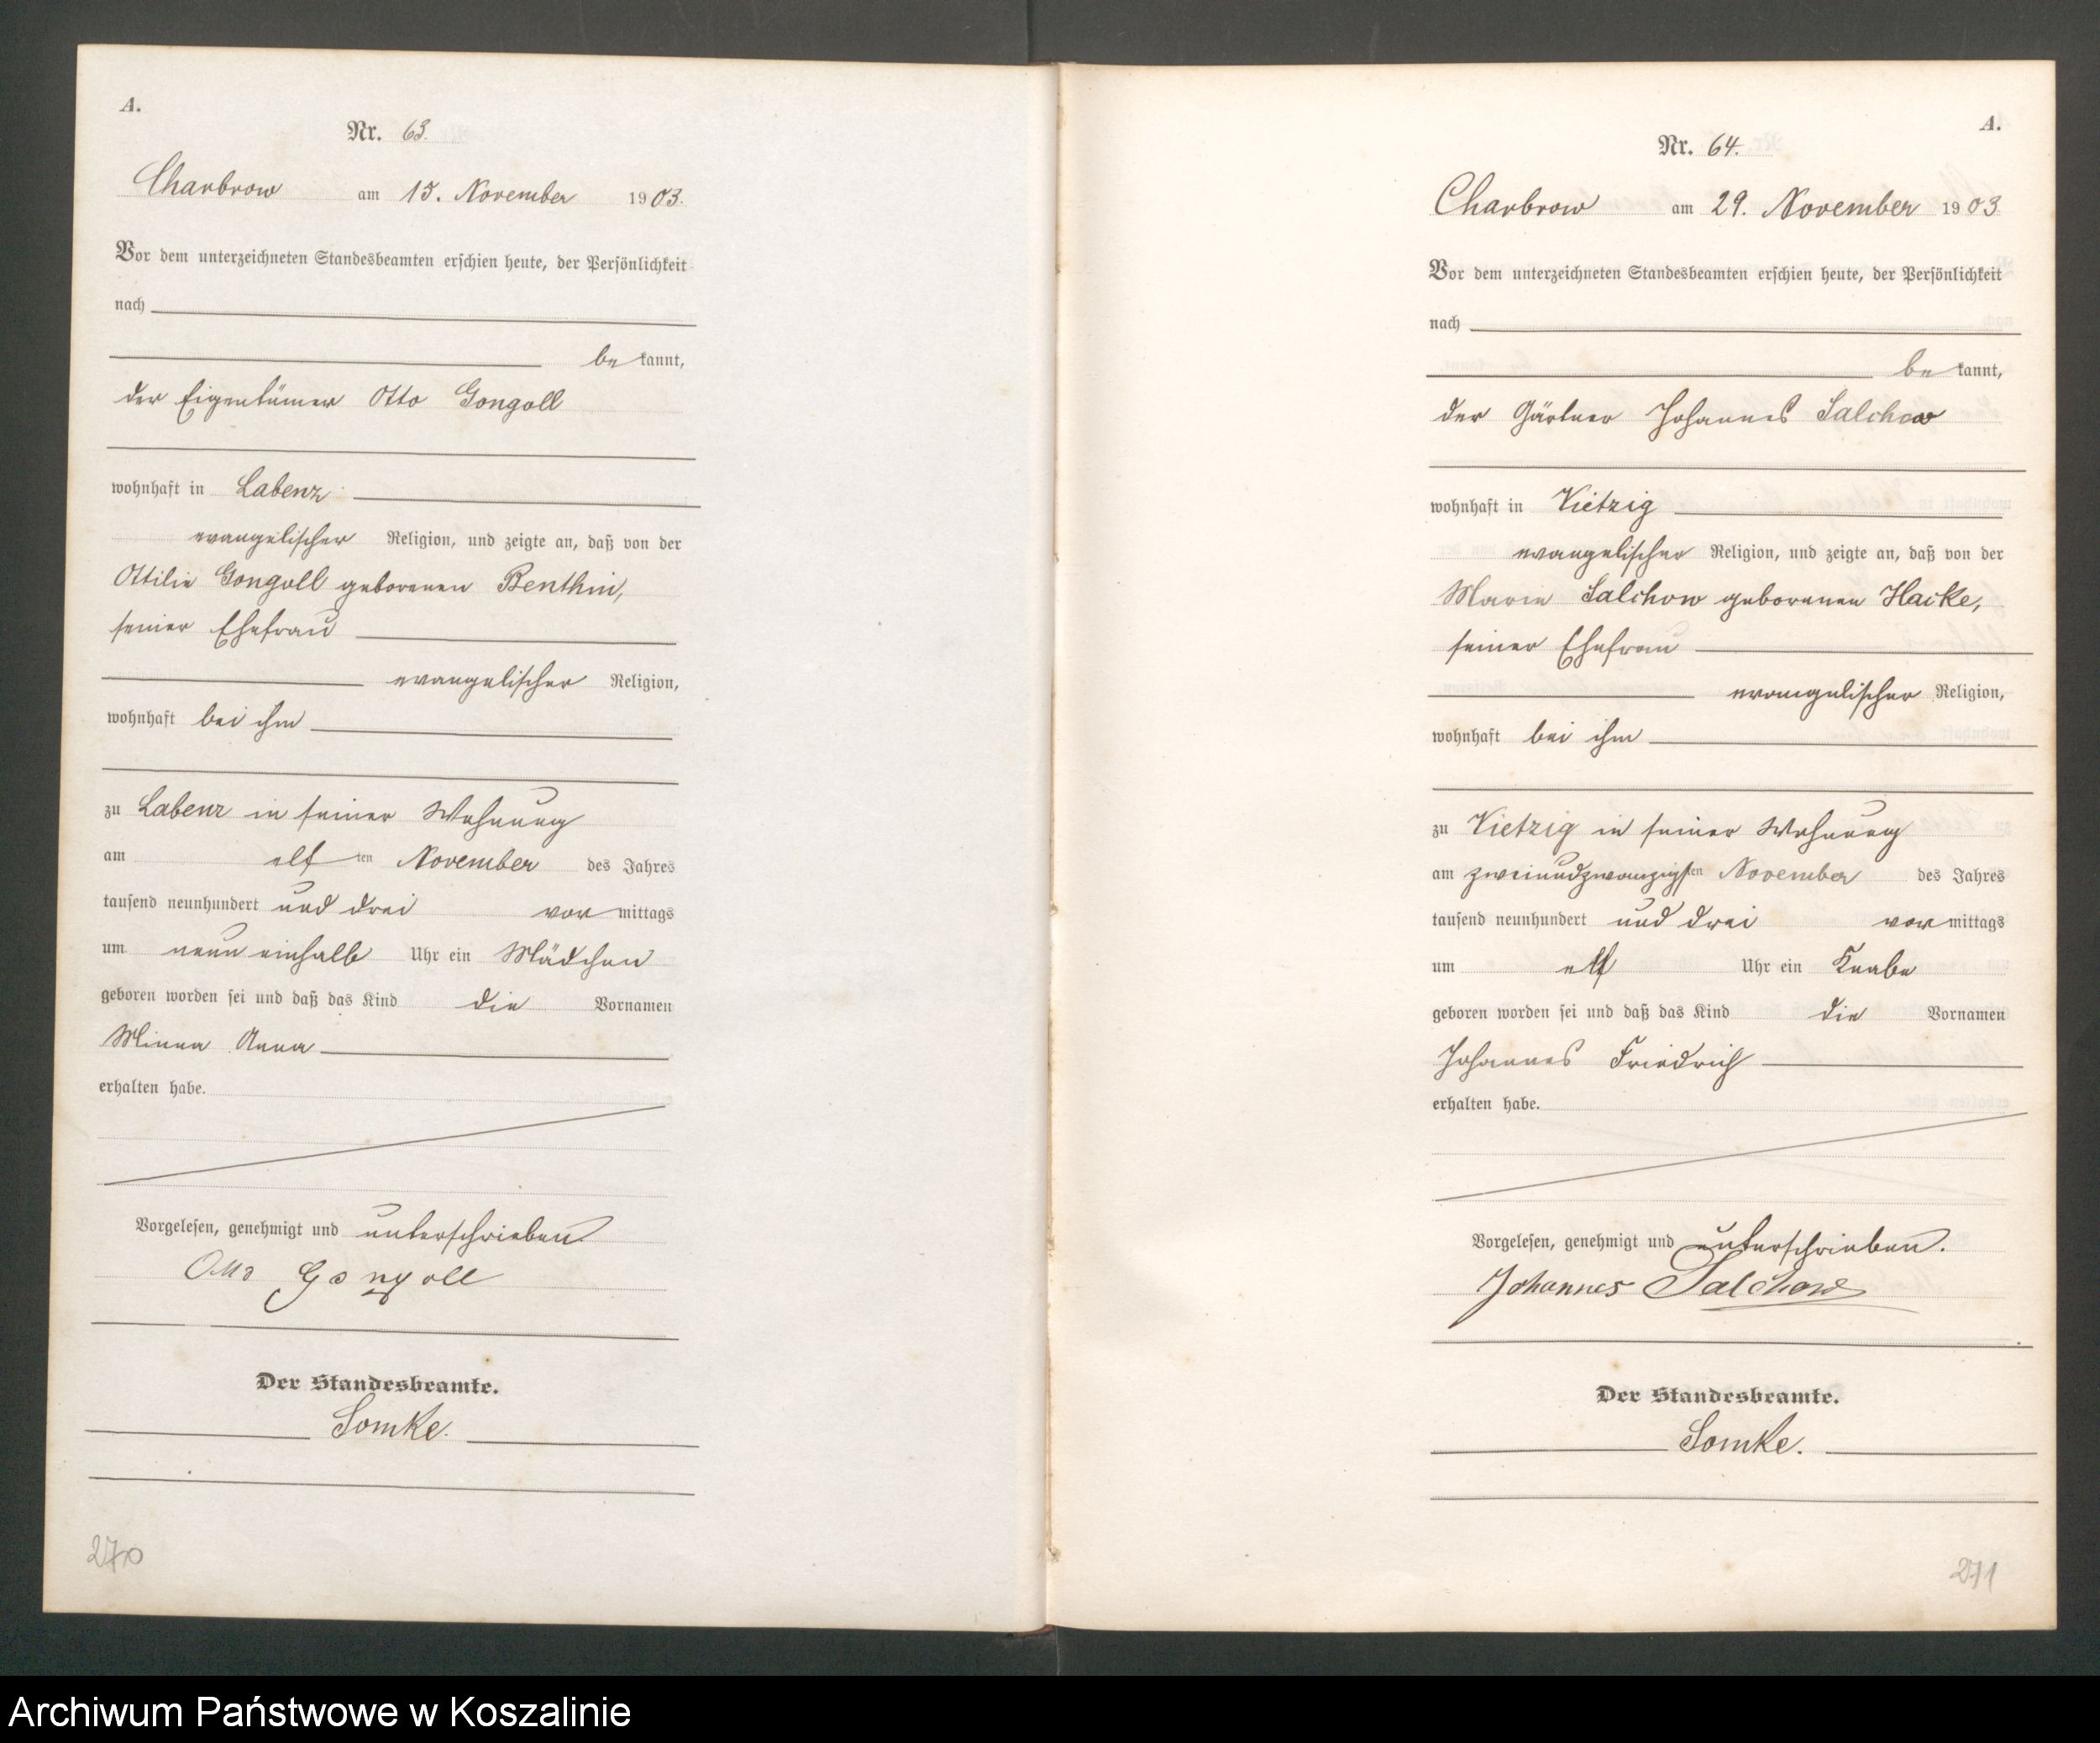 A.
Nr. 63.
Charbrow am 15. November 1903.
Vor dem unterzeichneten Standesbeamten erschien heute, der Persönlichkeit
nach
be kannt,
der Eigentümer Otto Gongoll
wohnhaft in Labenz
evangelischer Religion, und zeigte an, daß von der
Ottilie Gongoll geborenen Benthin,
seiner Ehefrau
evangelischer Religion,
wohnhaft bei ihm
zu Labenz in seiner Wohnung
am elf ten November des Jahres
tausend neunhundert und drei vor mittags
um neun einhalb Uhr ein Mädchen
geboren worden sei und daß das Kind die Vornamen
Minna Anna
erhalten habe.
Vorgelesen, genehmigt und unterschrieben
Otto Gongoll
Der Standesbeamte.
Lomke.
270
A.
Nr. 64.
Charbrow am 29. November 1903
Vor dem unterzeichneten Standesbeamten erschien heute, der Persönlichkeit
nach
be kannt,
der Gärtner Johannes Salchow
wohnhaft in Vietzig
evangelischer Religion, und zeigte an, daß von der
Marie Salchow geborenen Hacke,
seiner Ehefrau
evangelischer Religion,
wohnhaft bei ihm
zu Vietzig in seiner Wohnung
am zweiundzwanzigsten November des Jahres
tausend neunhundert und drei vor mittags
um elf Uhr ein Knabe
geboren worden sei und daß das Kind die Vornamen
Johannes Friedrich
erhalten habe.
Vorgelesen, genehmigt und unterschrieben.
Johannes Salchow
Der Standesbeamte.
Lomke.
271
Archiwum Państwowe w Koszalinie